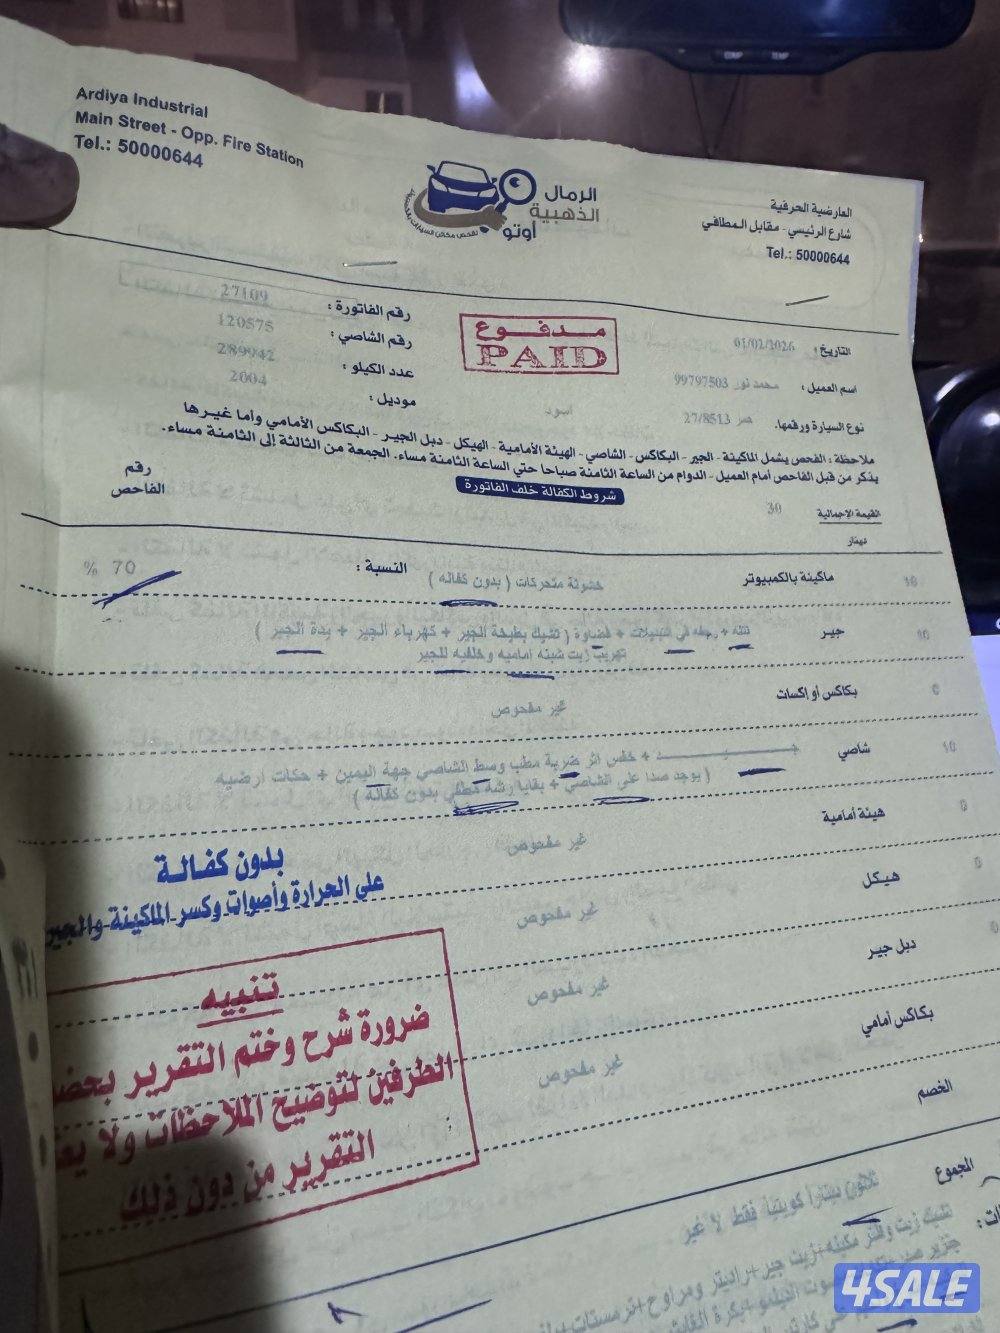 Ardiya Industrial
Main Street - Opp. Fire Station
Tel.: 50000644
الرمال
الذهبية
أوتو
العارضية الحرفية
شارع الرئيسي - مقابل المطافي
Tel.: 50000644
مدفوع
PAID
رقم الفاتورة : 27109
رقم الشاصي : 120575
عدد الكيلو : 289942
موديل : 2004
التاريخ : 01/02/2026
اسم العميل : محمد نور 99797503
نوع السيارة ورقمها. صر 27/8513 اسود
ملاحظة : الفحص يشمل الماكينة - الجير - البكاكس - الشاصي - الهيئة الأمامية - الهيكل - دبل الجير - البكاكس الأمامي وأما غيرها
يذكر من قبل الفاحص أمام العميل - الدوام من الساعة الثامنة صباحا حتي الساعة الثامنة مساء. الجمعة من الثالثة إلى الثامنة مساء.
شروط الكفالة خلف الفاتورة
رقم
الفاحص
القيمة الاجمالية 30
دينار
10 ماكينة بالكمبيوتر خشونة متحركات ( بدون كفاله ) النسبة : 70 %
10 جير نتله + رجفه في التبديلات + قضاوة ( تشيك بطيخة الجير + كهرباء الجير + بدة الجير )
تهريب زيت شبنه اماميه وخلفيه للجير
0 بكاكس أو إكسات غير مفحوص
10 شاصي جـــيـــد + خفس اثر ضربة مطب وسط الشاصي جهة اليمين + حكات ارضيه
( يوجد صدا على الشاصي + بقايا رشة مطفي بدون كفالة )
0 هيئة أمامية غير مفحوص
0 هيكل غير مفحوص
0 دبل جير غير مفحوص
بكاكس أمامي غير مفحوص
الخصم
بدون كفالة
على الحرارة وأصوات وكسر الماكينة والجير
تنبيه
ضرورة شرح وختم التقرير
الطرفين لتوضيح الملاحظات ولا
التقرير من دون ذلك
المجموع ثلاثون دينارا كويتيا فقط لا غير
تشيك زيت وفلتر مكينه+زيت جير+راديتر ومراوح
4SALE